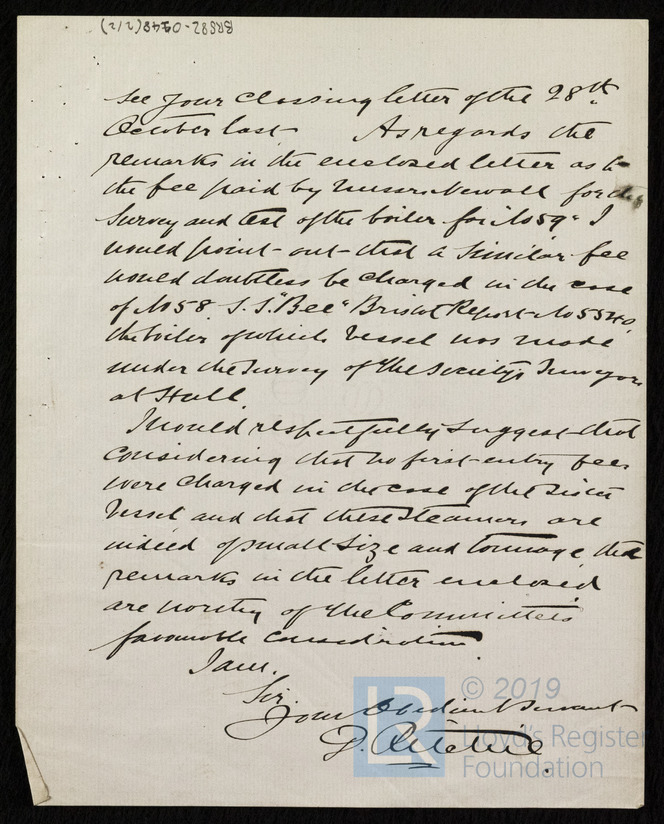 BRS82-0748(2/2)
See your classing letter of the 28th
October last As regards the
remarks in the enclosed letter as to
the fee paid by Messrs Newall for the
Survey and test of the boiler for No 59" I
would point out that a similar fee
would doubtless be charged in the case
of No 58 S.S. "Bee" Bristol Report No
the boiler of which Vessel was made
under the Survey of the Society's Surveyors
at Hull.
I would respectfully suggest that
considering that no first entry fees
were charged in the case of the Sister
Vessel and that these Steamers are
indeed of small size and tonnage, the
remarks in the letter enclosed
are worthy of the Committee's
favourable consideration.
I am,
Sir,
Your Obedient Servant
© 2019
LR
Lloyd's Register
Foundation